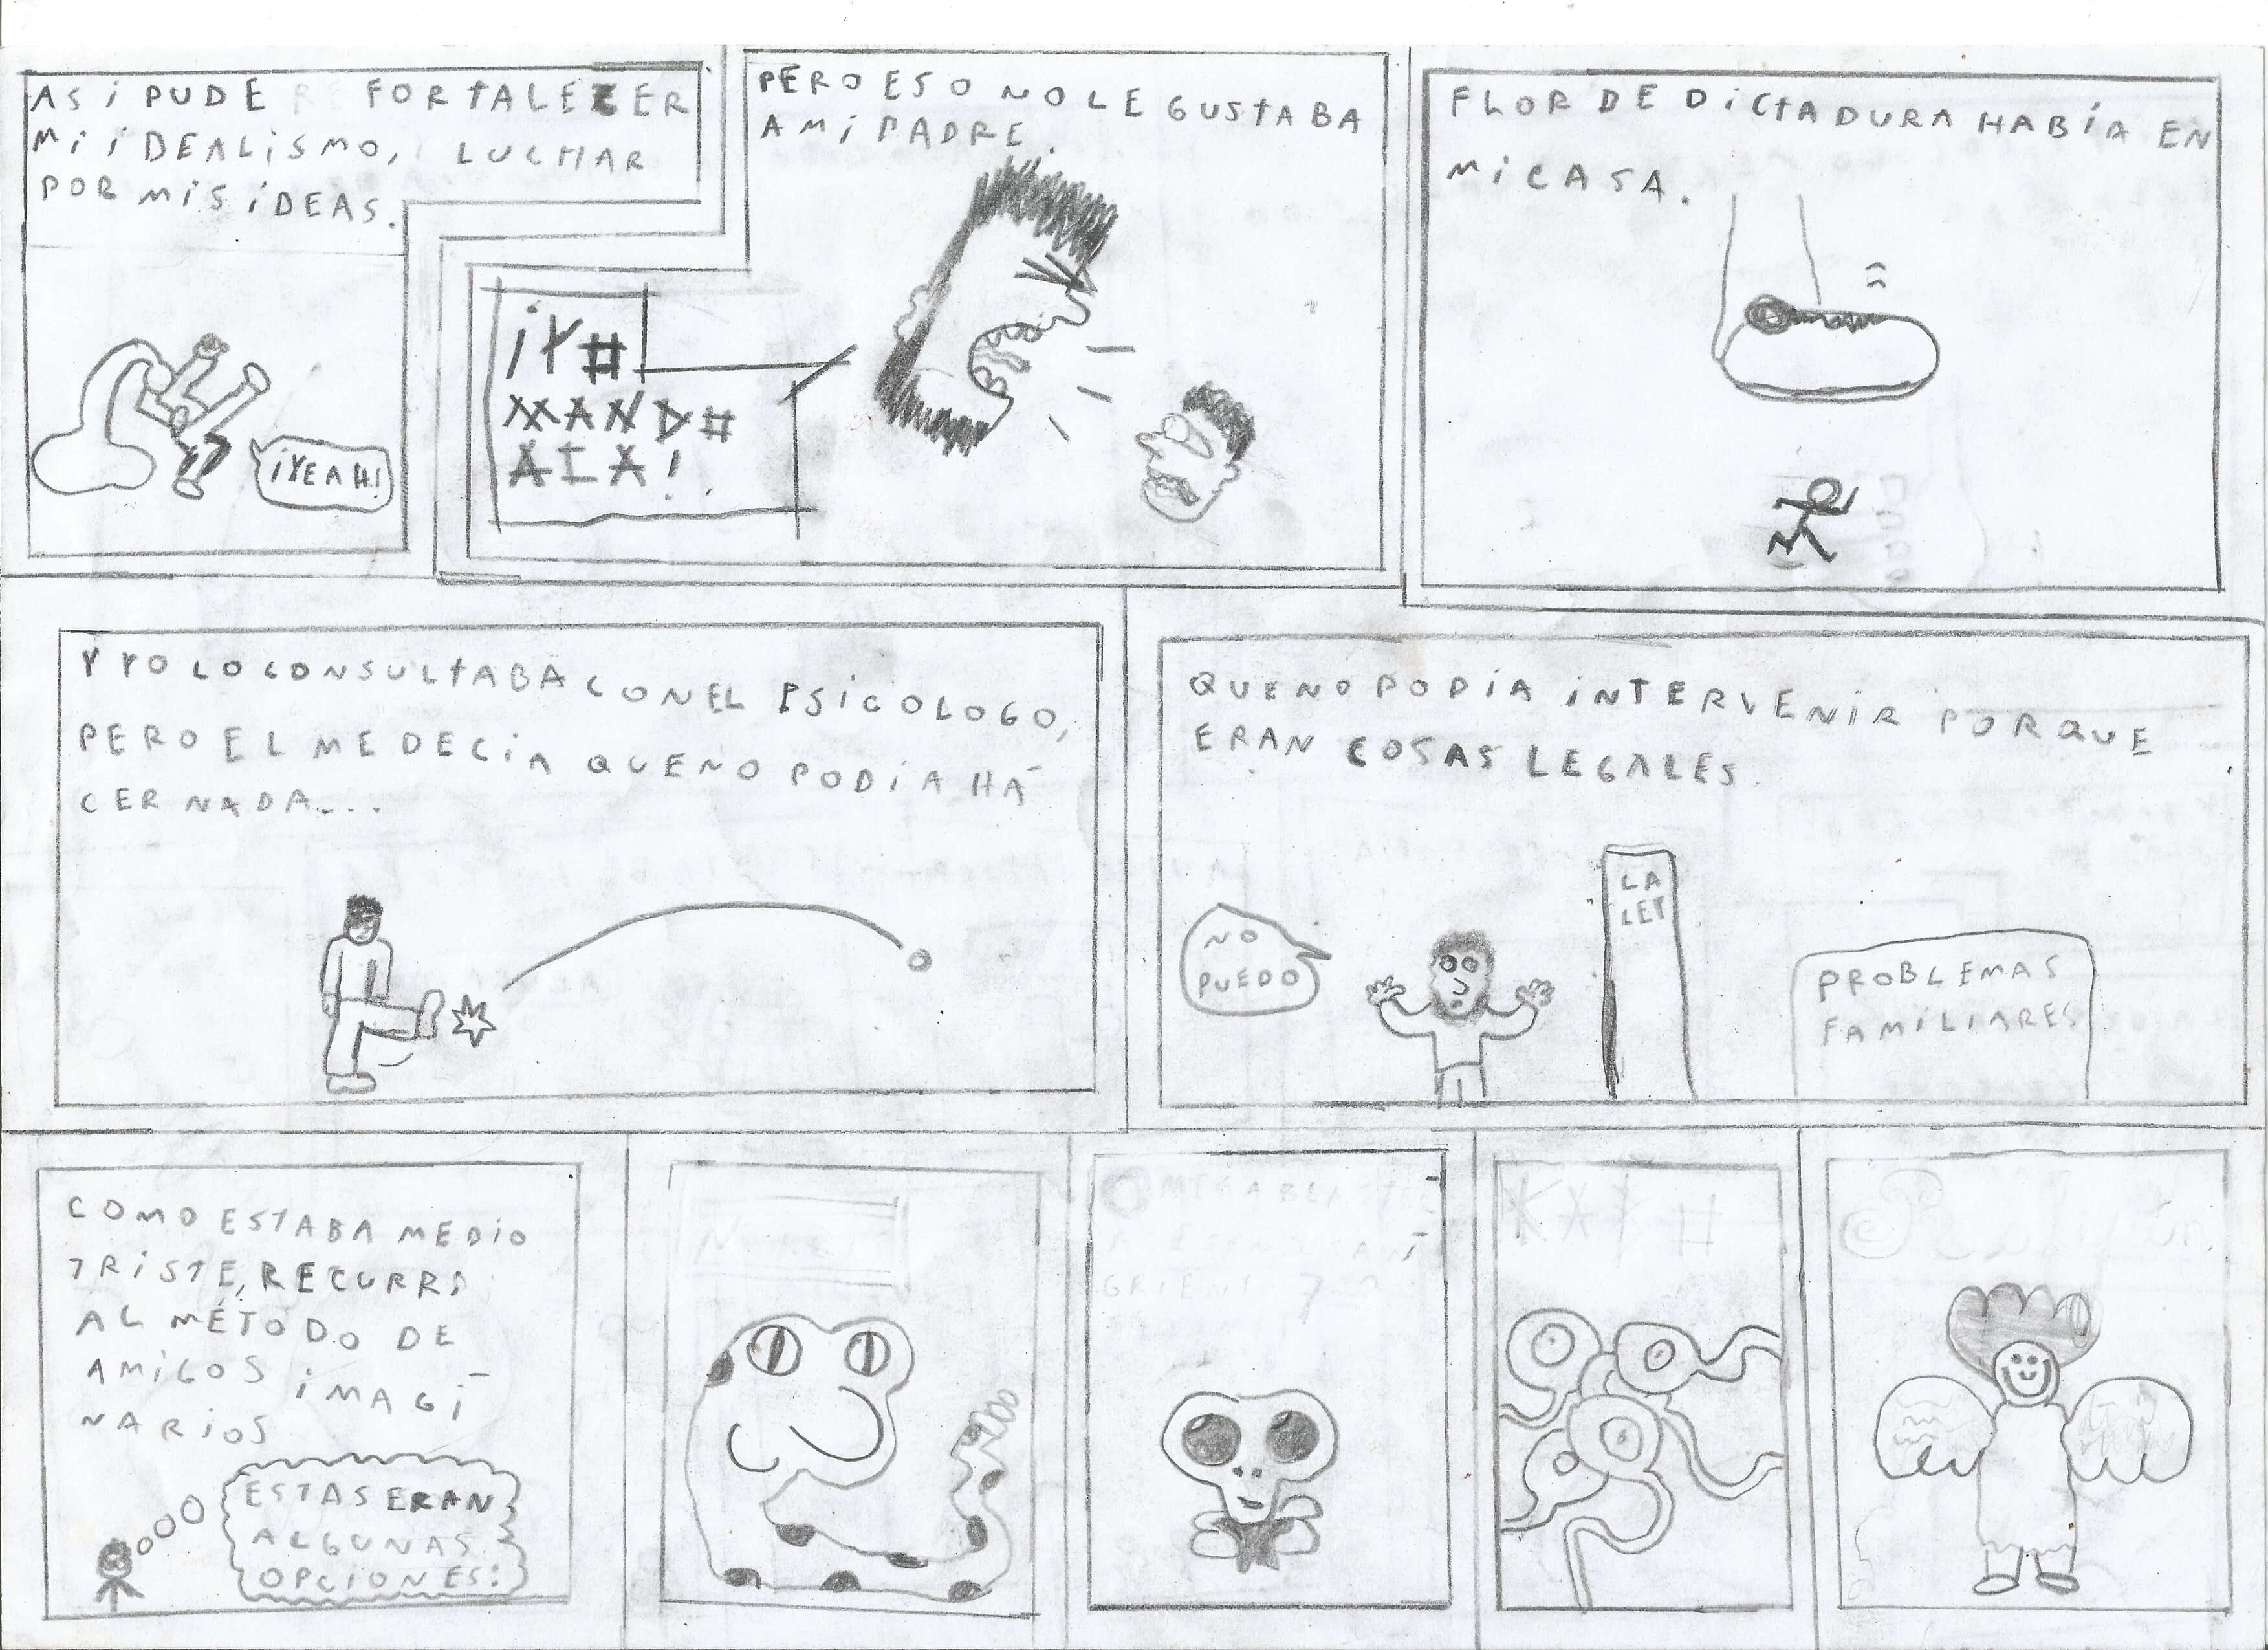 ASÍ PUDE FORTALECER
MI IDEALISMO, LUCHAR
POR MIS IDEAS.
¡YEAH!
PERO ESO NO LE GUSTABA
A MI PADRE.
¡Y#
MAND#
AIA!
FLOR DE DICTADURA HABÍA EN
MI CASA.
Y YO LO CONSULTABA CON EL PSICOLOGO,
PERO EL ME DECÍA QUE NO PODÍA HA-
CER NADA...
QUE NO PODÍA INTERVENIR PORQUE
ERAN COSAS LEGALES.
NO
PUEDO
LA
LEY
PROBLEMAS
FAMILIARES
COMO ESTABA MEDIO
TRISTE, RECURRÍ
AL MÉTODO DE
AMIGOS IMAGI-
NARIOS
ESTAS ERAN
ALGUNAS
OPCIONES: